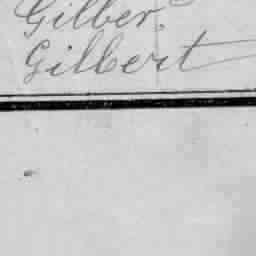 Gilber.
Gilbert